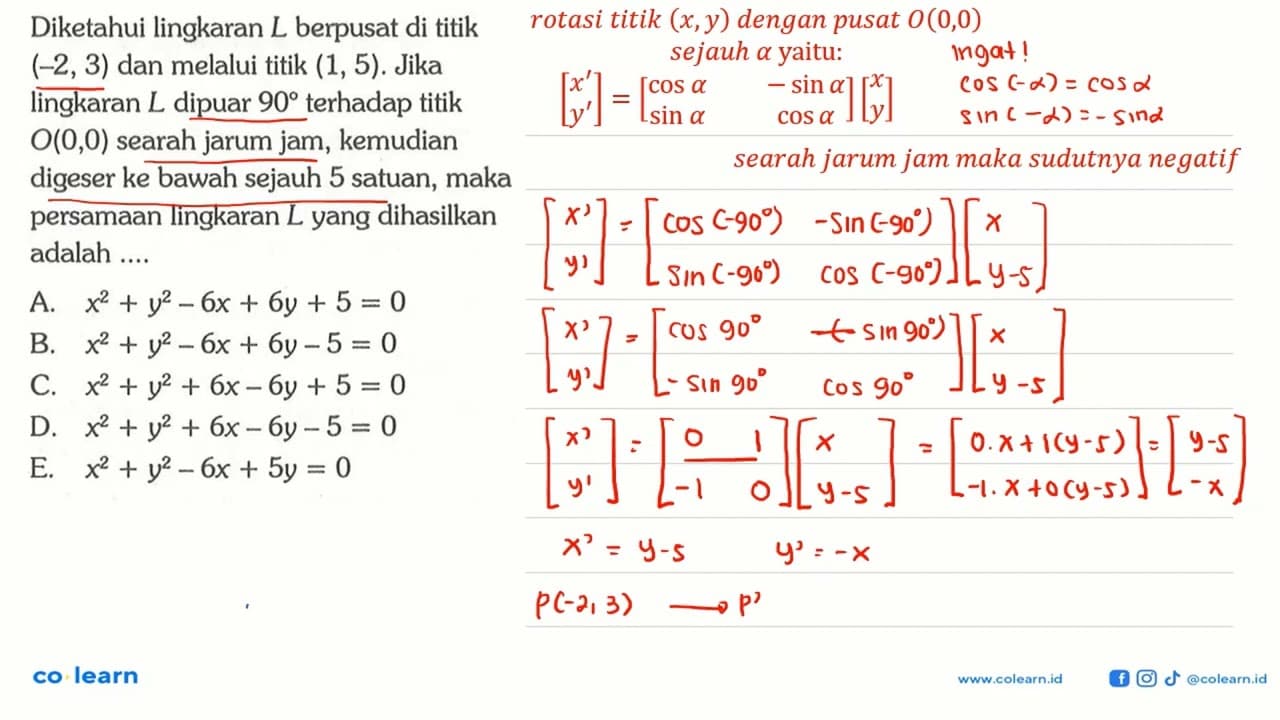 Diketahui lingkaran L berpusat di titik
(–2, 3) dan melalui titik (1, 5). Jika
lingkaran L dipuar 90° terhadap titik
O(0,0) searah jarum jam, kemudian
digeser ke bawah sejauh 5 satuan, maka
persamaan lingkaran L yang dihasilkan
adalah ....
A. x² + y² – 6x + 6y + 5 = 0
B. x² + y² – 6x + 6y – 5 = 0
C. x² + y² + 6x – 6y + 5 = 0
D. x² + y² + 6x – 6y – 5 = 0
E. x² + y² – 6x + 5y = 0
rotasi titik (x, y) dengan pusat O(0,0)
sejauh α yaitu:
[x' y'] = [cos α − sin α sin α cos α] [x y]
ingat!
cos (-α) = cos α
sin (-α) = - sin α
searah jarum jam maka sudutnya negatif
[x' y'] = [cos (-90°) -sin (-90°) sin (-90°) cos (-90°)] [x y-5]
[x' y'] = [cos 90° -(- sin 90°) - sin 90° cos 90°] [x y-5]
[x' y'] = [0 1 -1 0] [x y-5] = [0.x + 1(y-5) -1.x + 0(y-5)] = [y-5 -x]
x' = y-5 y' = -x
P(-2, 3) → P'
co·learn
www.colearn.id @colearn.id